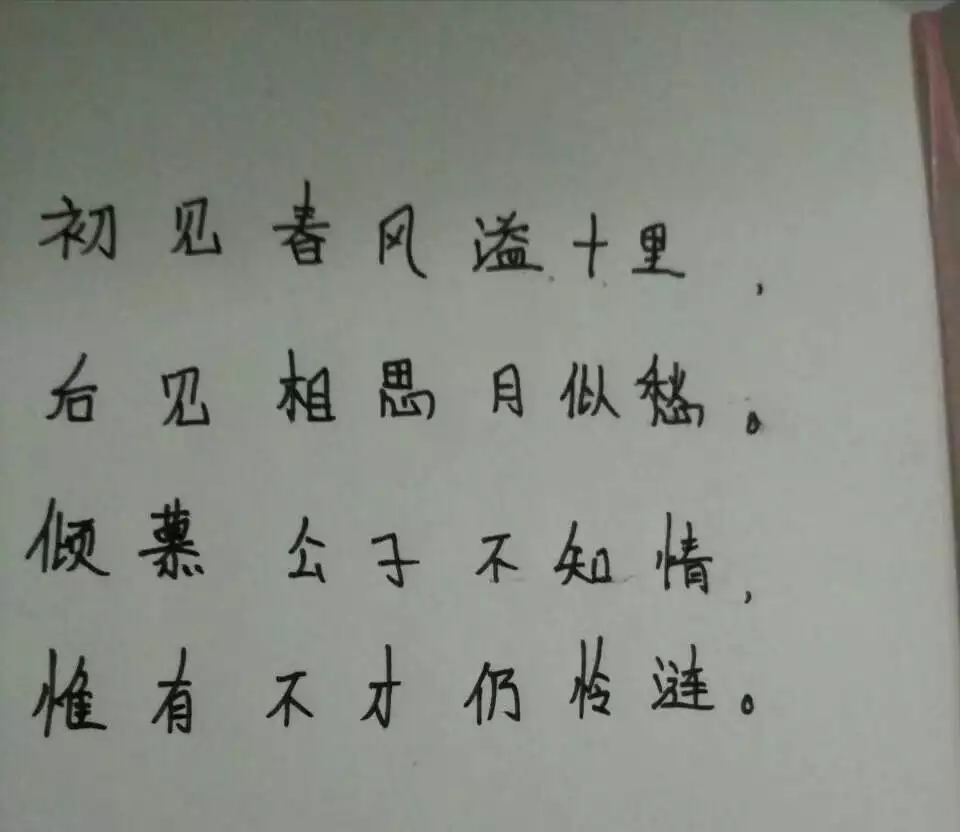 初见春风溢十里，
后见相思月似愁。
倾慕公子不知情，
惟有不才仍怜涟。